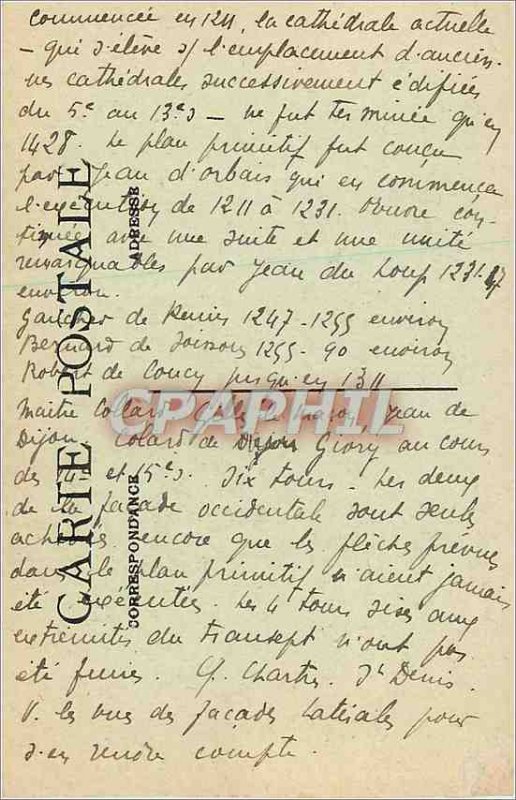 commencée en 1211, la cathédrale actuelle
– qui s'élève s/ l'emplacement d'ancien-
nes cathédrales successivement édifiées
du 5e au 13e s – ne fut terminée qu'en
1428. Le plan primitif fut conçu
par Jean d'Orbais qui en commença
l'exécution de 1211 à 1231. Oeuvre con-
tinuée avec une suite et une unité
remarquables par Jean du Loup 1231.47
environ.
Gaucher de Reims 1247-1255 environ
Bernard de Soissons 1255-90 environ
Robert de Coucy jusqu'en 1311
Maître Collard, Gilles le maçon, Jean de
Dijon, Colard de Givry au cours
des 14e et 15e s. Six tours. Les deux
de la façade occidentale sont seules
achevées encore que les flèches prévues
dans le plan primitif n'aient jamais
été exécutées. Les 4 tours sises aux
extrémités du transept n'ont pas
été finies. Cf. Chartres. St Denis.
V. les vues des façades latérales pour
s'en rendre compte.
CARTE POSTALE
CORRESPONDANCE
ADRESSE
CPAPHIL